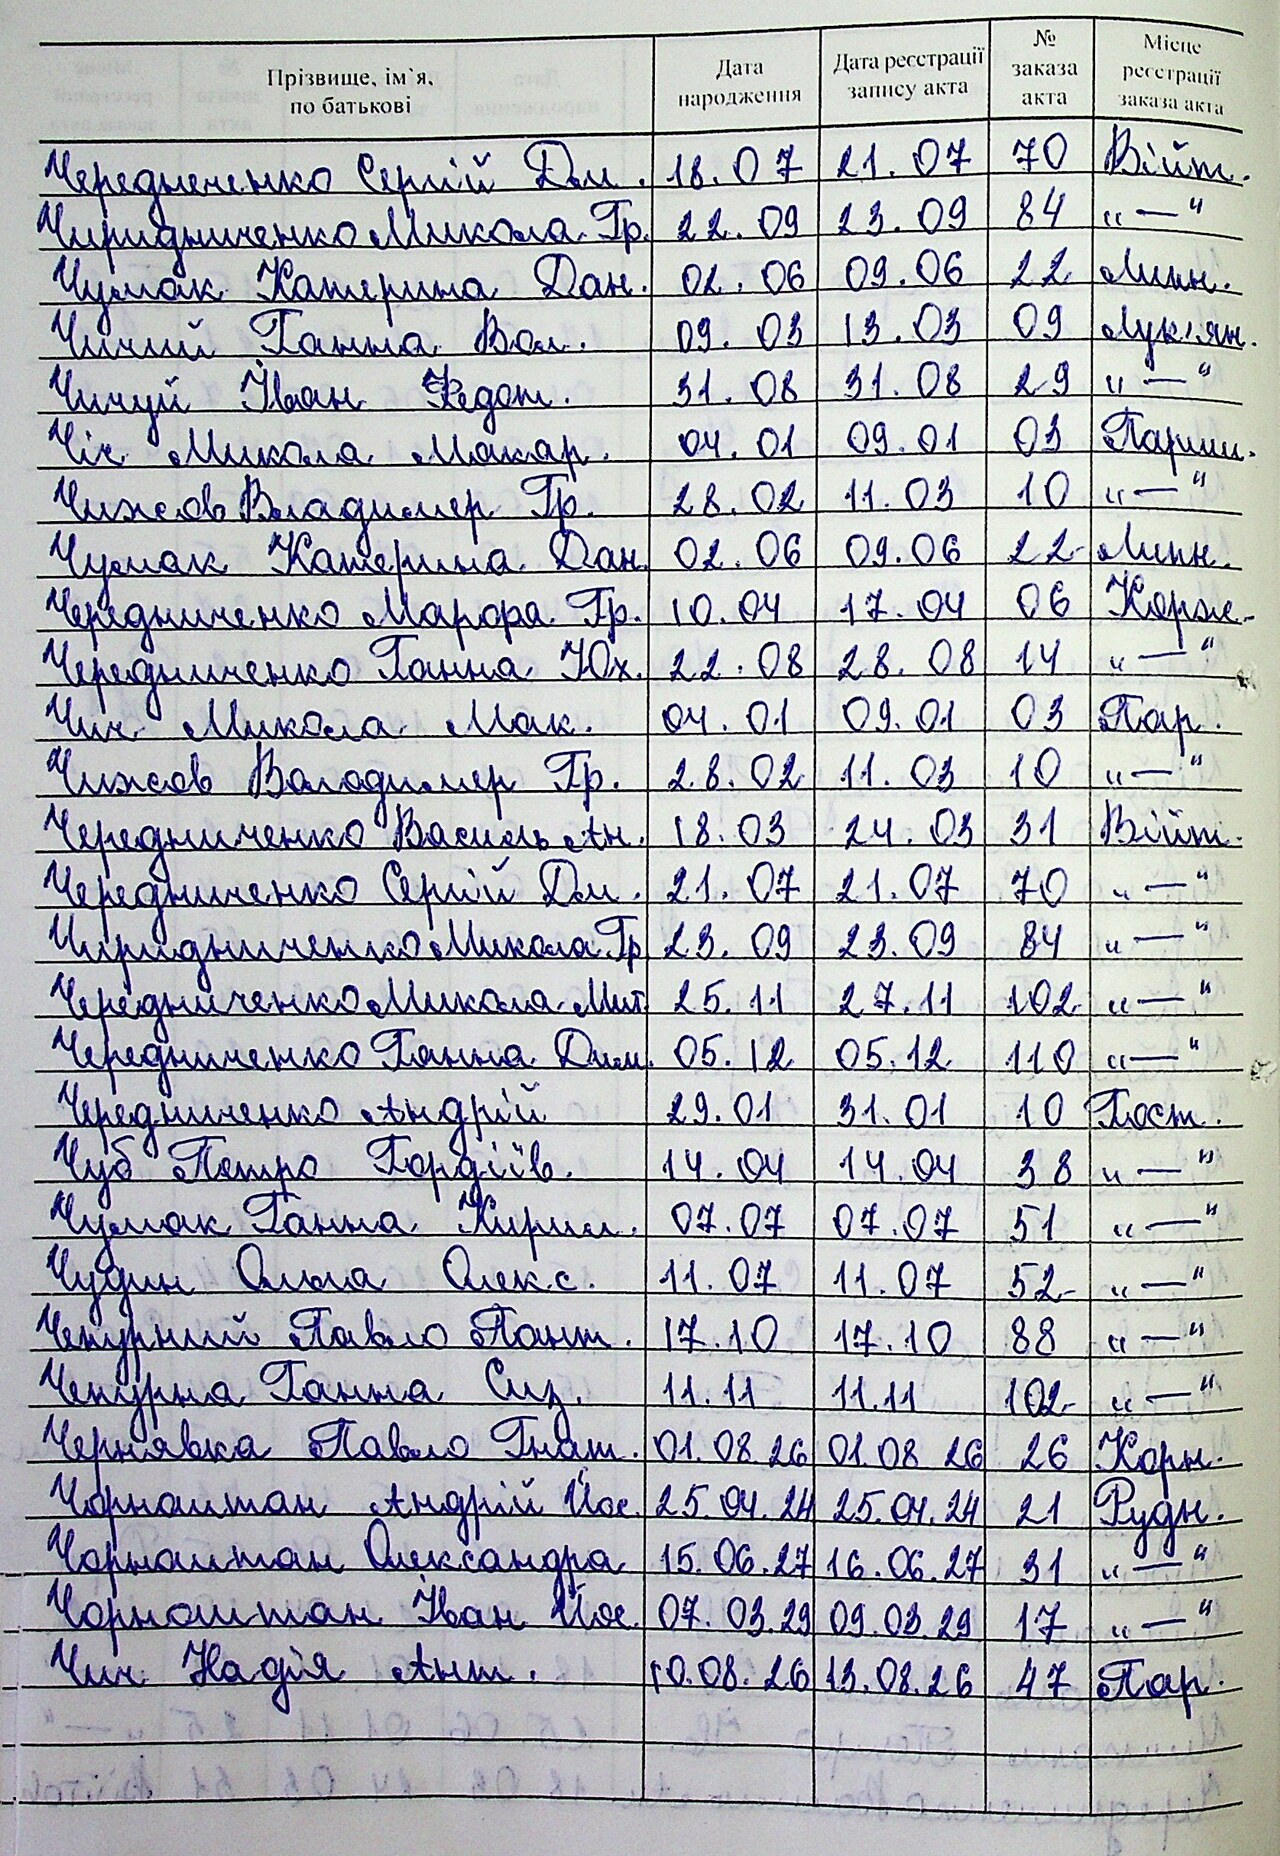 Прізвище, ім`я, по батькові Дата народження Дата реєстрації запису акта № заказа акта Місце реєстрації заказа акта
Череднеченко Сергій Дм. 18.07 21.07 70 Війт.
Чиридниченко Микола Гр. 22.09 23.09 84 "—"
Чумак Катерина Дан. 02.06 09.06 22 Линн.
Чичий Ганна Вол. 09.03 13.03 09 Лук'ян.
Чичуй Іван Федот. 31.08 31.08 29 "—"
Чіч Микола Макар. 04.01 09.01 03 Париш.
Чижов Владимер Гр. 28.02 11.03 10 "—"
Чумак Катерина Дан. 02.06 09.06 22 Линн.
Чередниченко Марфа Гр. 10.04 17.04 06 Корж.
Чередниченко Ганна Юх. 22.08 28.08 14 "—"
Чич Микола Мак. 04.01 09.01 03 Пар.
Чижов Володимер Гр. 28.02 11.03 10 "—"
Чередниченко Василь Ан. 18.03 24.03 31 Війт.
Чередниченко Сергій Дм. 21.07 21.07 70 "—"
Чиридниченко Микола Гр 23.09 23.09 84 "—"
Чередниченко Микола Мит. 25.11 27.11 102 "—"
Чередниченко Ганна Дим. 05.12 05.12 110 "—"
Чередниченко Андрій 29.01 31.01 10 Гост.
Чуб Петро Гордіїв. 14.04 14.04 38 "—"
Чумак Ганна Кирил. 07.07 07.07 51 "—"
Чудин Ольга Олекс. 11.07 11.07 52 "—"
Чепурний Павло Пант. 17.10 17.10 88 "—"
Чепурна Ганна Сиз. 11.11 11.11 102 "—"
Чернявка Павло Гнат. 01.08.26 01.08.26 26 Корн.
Чорноштан Андрій Йос. 25.04.24 25.04.24 21 Рудн.
Чорноштан Олександра 15.06.27 16.06.27 31 "—"
Чорноштан Іван Йос. 07.03.29 09.03.29 17 "—"
Чич Надія Ант. 10.08.26 13.08.26 47 Пар.